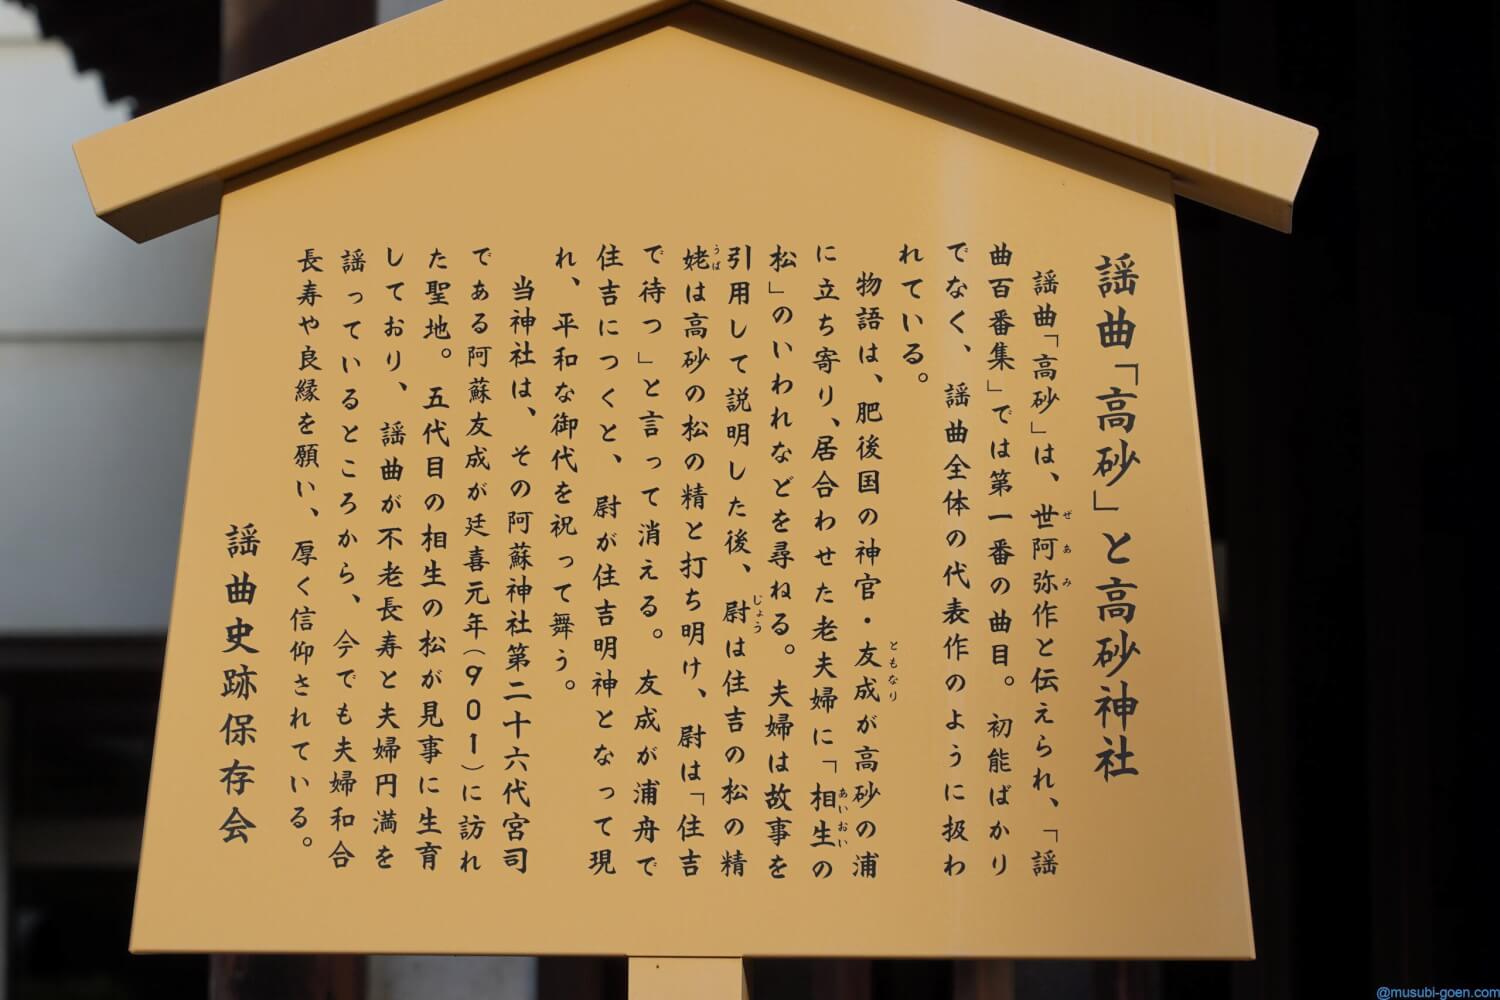 謡曲「高砂」と高砂神社
謡曲「高砂」は、世阿弥作と伝えられ、「謡
ぜあみ
曲百番集」では第一番の曲目。初能ばかり
でなく、謡曲全体の代表作のように扱わ
れている。
物語は、肥後国の神官・友成が高砂の浦
ともなり
に立ち寄り、居合わせた老夫婦に「相生の
あいおい
松」のいわれなどを尋ねる。夫婦は故事を
引用して説明した後、尉は住吉の松の精
じょう
姥は高砂の松の精と打ち明け、尉は「住吉
うば
で待つ」と言って消える。友成が浦舟で
住吉につくと、尉が住吉明神となって現
れ、平和な御代を祝って舞う。
当神社は、その阿蘇神社第二十六代宮司
である阿蘇友成が廷喜元年(901)に訪れ
た聖地。五代目の相生の松が見事に生育
しており、謡曲が不老長寿と夫婦円満を
謡っているところから、今でも夫婦和合
長寿や良縁を願い、厚く信仰されている。
謡曲史跡保存会
@musubi-goen.com